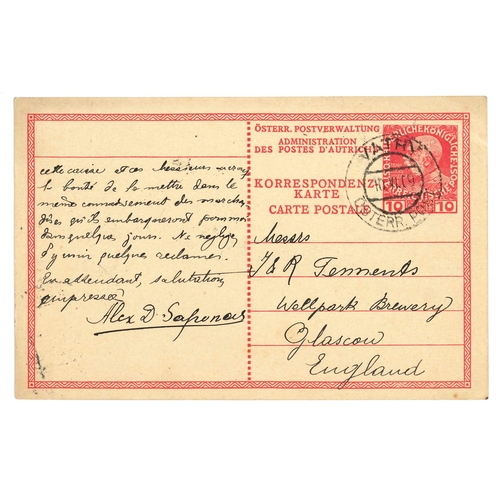 cette caisse et ces Messieurs auront
la bonté de la mettre dans le
même connaissement des marchan
dises qu'ils embarqueront pour moi
dans quelques jours. Ne négligez
d'y unir quelques réclames.
En attendant, salutations
empressées
Alex D.
ÖSTERR. POSTVERWALTUNG
ADMINISTRATION
DES POSTES D'AUTRICHE
KORRESPONDENZ
KARTE
CARTE POSTALE
VATHY
ÖSTERR. POST
10 10
Messrs
J & R Tennents
Wellpark Brewery
Glascow
England